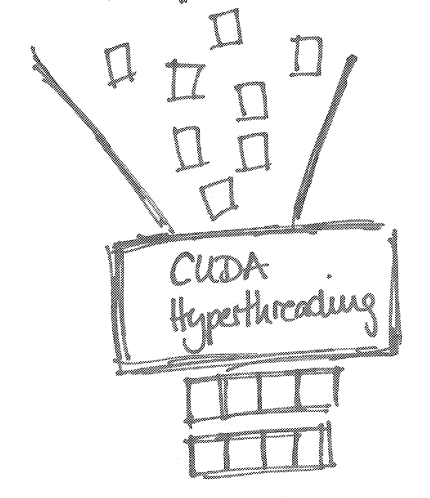 CUDA
Hyperthreading